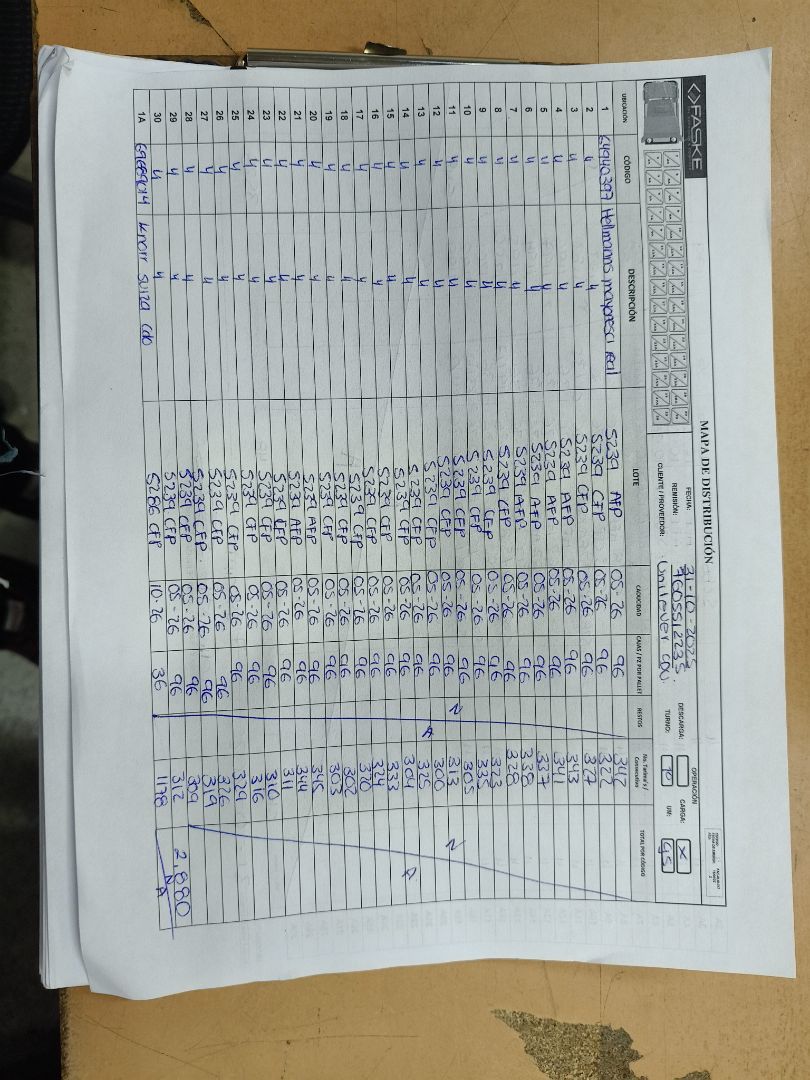 FASKE
MAPA DE DISTRIBUCIÓN
FECHA: 31-10-2025
REMISIÓN: 9605512235
CLIENTE / PROVEEDOR: Unilever CDU.
OPERACIÓN
DESCARGA: CARGA: X
TURNO: TP UM: 45
UBICACIÓN CÓDIGO DESCRIPCIÓN LOTE CADUCIDAD CAJAS / PZ POR PALLET RESTOS No. Tarima's / Consecutivo TOTAL POR CÓDIGO
1 64940397 Hellmanns mayonesa real 5239 AFP 05-26 96 342
2 4 4 5239 CFP 05-26 96 322
3 4 4 5239 CFP 05-26 96 327
4 4 4 5239 AFP 05-26 96 343
5 4 4 5239 AFP 05-26 96 341
6 4 4 5239 AFP 05-26 96 337
7 4 4 5239 AFP 05-26 96 338
8 4 4 5239 CFP 05-26 96 328
9 4 4 5239 CFP 05-26 96 323
10 4 4 5239 CFP 05-26 96 335
11 4 4 5239 CFP 05-26 96 305
12 4 4 5239 CFP 05-26 96 N 313 N
13 4 4 5239 CFP 05-26 96 A 300
14 4 4 5239 CFP 05-26 96 325 A
15 4 4 5239 CFP 05-26 96 304
16 4 4 5239 CFP 05-26 96 333
17 4 4 5239 CFP 05-26 96 324
18 4 4 5239 CFP 05-26 96 320
19 4 4 5239 CFP 05-26 96 302
20 4 4 5239 CFP 05-26 96 303
21 4 4 5239 AFP 05-26 96 345
22 4 4 5239 AFP 05-26 96 344
23 4 4 5239 CFP 05-26 96 311
24 4 4 5239 CFP 05-26 96 310
25 4 4 5239 CFP 05-26 96 316
26 4 4 5239 CFP 05-26 96 329
27 4 4 5239 CFP 05-26 96 326
28 4 4 5239 CFP 05-26 96 319
29 4 4 5239 CFP 05-26 96 309
30 4 4 5239 CFP 05-26 96 312 2,880
1A 69689014 Knorr suiza cdo 5286 CFP 10-26 36 1178 N A